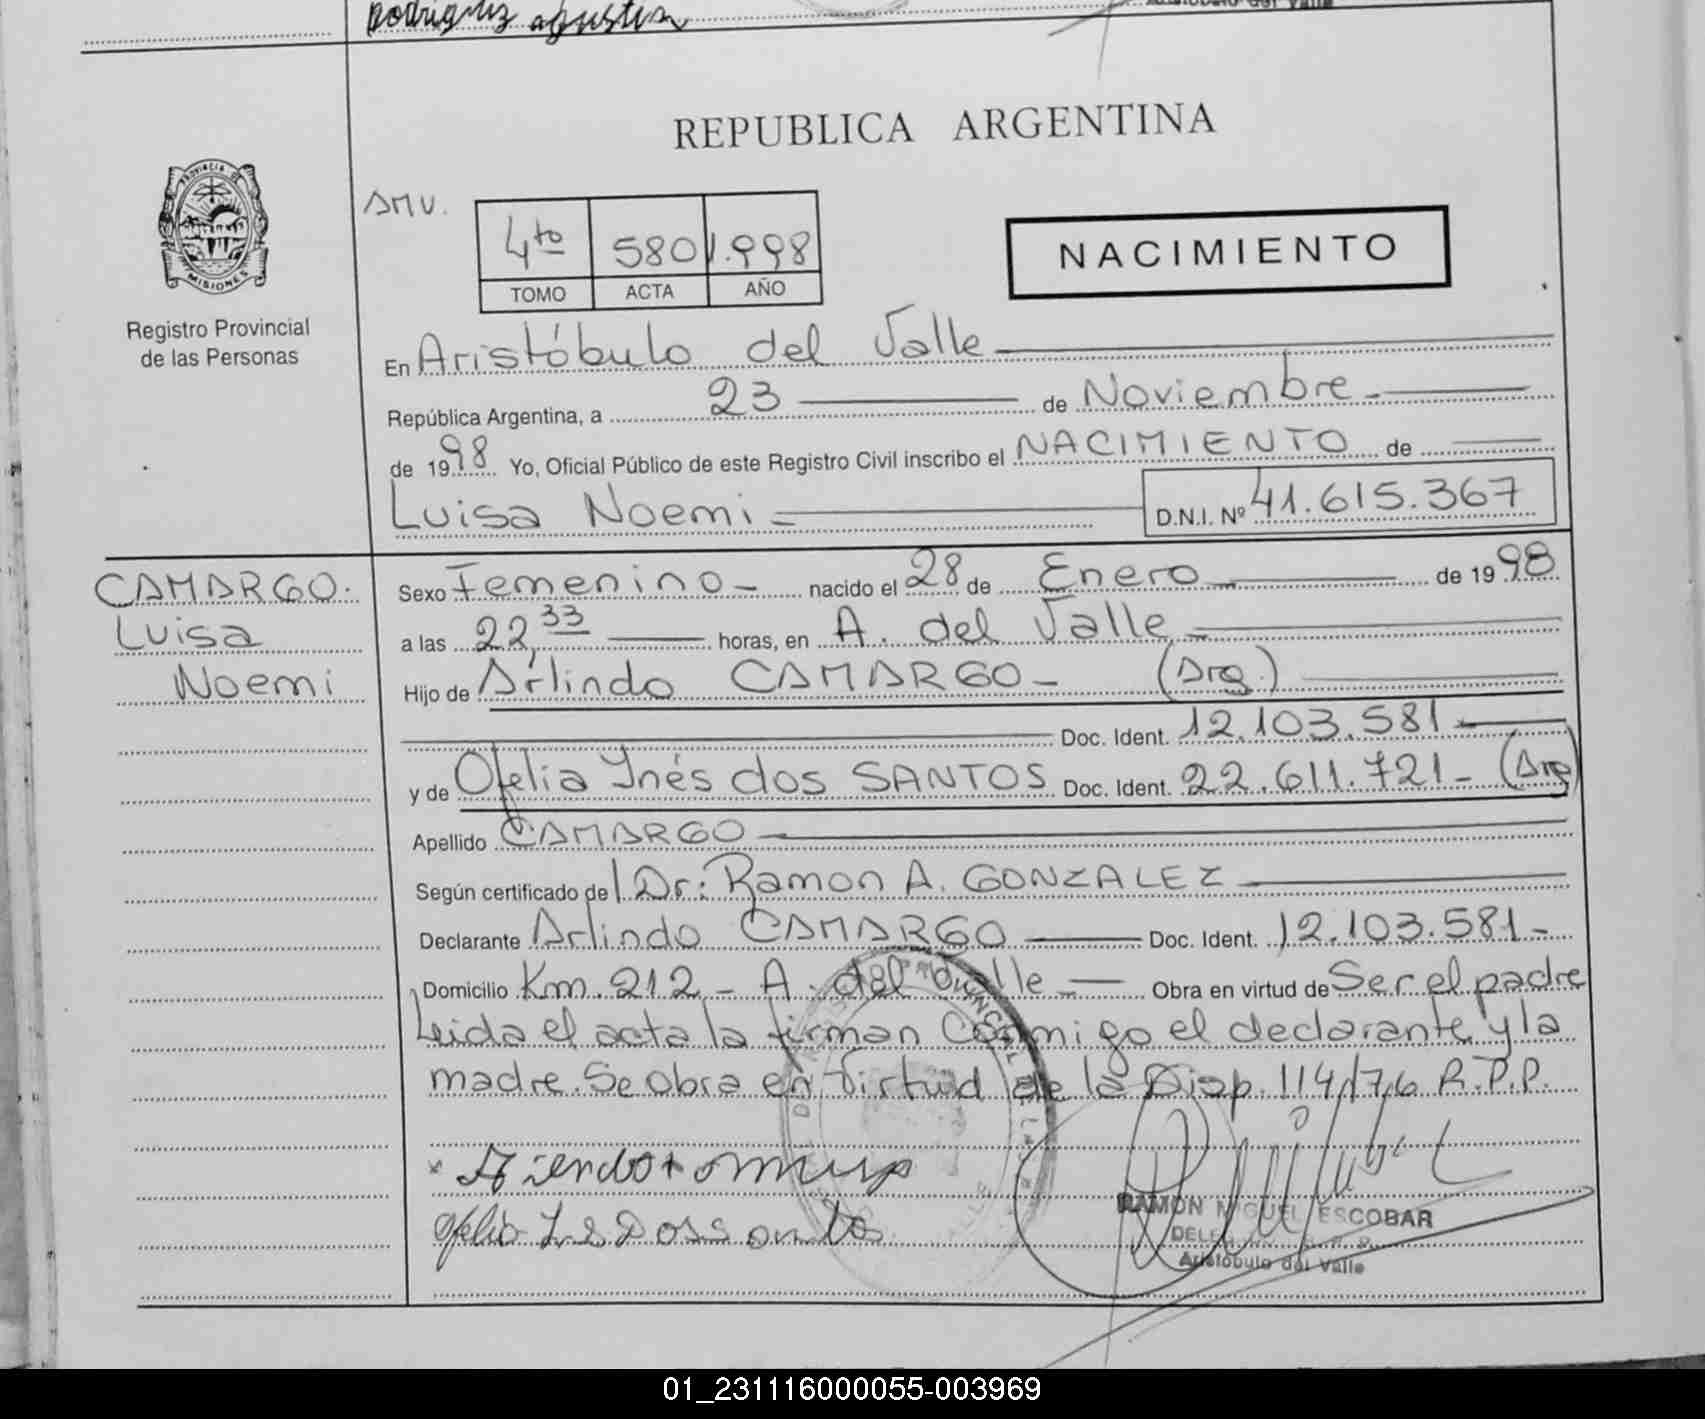 Rodriguez Agustin
Aristóbulo del Valle
REPUBLICA ARGENTINA
PROVINCIA DE
MISIONES
Registro Provincial
de las Personas
AMV.
4to 580 1.998
TOMO ACTA AÑO
NACIMIENTO
En Aristóbulo del Valle
República Argentina, a 23 de Noviembre
de 1998 Yo, Oficial Público de este Registro Civil inscribo el NACIMIENTO de
Luisa Noemi D.N.I. Nº 41.615.367
CAMARGO.
Luisa
Noemi
Sexo Femenino nacido el 28 de Enero de 1998
a las 22,33 horas, en A. del Valle
Hijo de Arlindo CAMARGO (Arg.)
Doc. Ident. 12.103.581
y de Ofelia Ynés dos SANTOS Doc. Ident. 22.611.721 (Arg)
Apellido CAMARGO
Según certificado de Dr: Ramon A. GONZALEZ
Declarante Arlindo CAMARGO Doc. Ident. 12.103.581
Domicilio Km. 212 - A. del Valle Obra en virtud de Ser el padre
Leida el acta la firman conmigo el declarante y la
madre. Se obra en virtud de la Disp. 114/76 R.P.P.
RAMON MIGUEL ESCOBAR
Aristóbulo del Valle
01_231116000055-003969